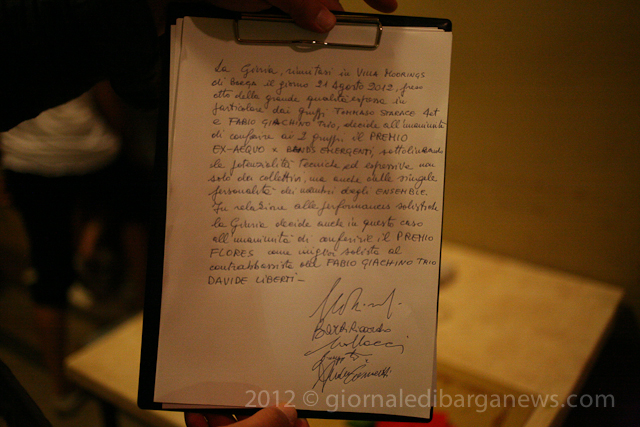 La Giuria, riunitasi in VILLA MOORINGS
di Barga il giorno 21 Agosto 2012, preso
atto della grande qualità espressa in
particolare dai gruppi TOMMASO STARACE 4et
e FABIO GIACHINO TRIO, decide all'unanimità
di conferire ai 2 gruppi il PREMIO
EX-AEQUO x BANDS EMERGENTI, sottolineando
le potenzialità tecniche ed espressive non
solo dei collettivi, ma anche delle singole
personalità dei membri degli ENSEMBLE.
In relazione alle performances solistiche
la Giuria decide anche in questo caso
all'unanimità di conferire il PREMIO
FLORES come miglior solista al
contrabbassista del FABIO GIACHINO TRIO
DAVIDE LIBERTI –
2012 © giornaledibarganews.com